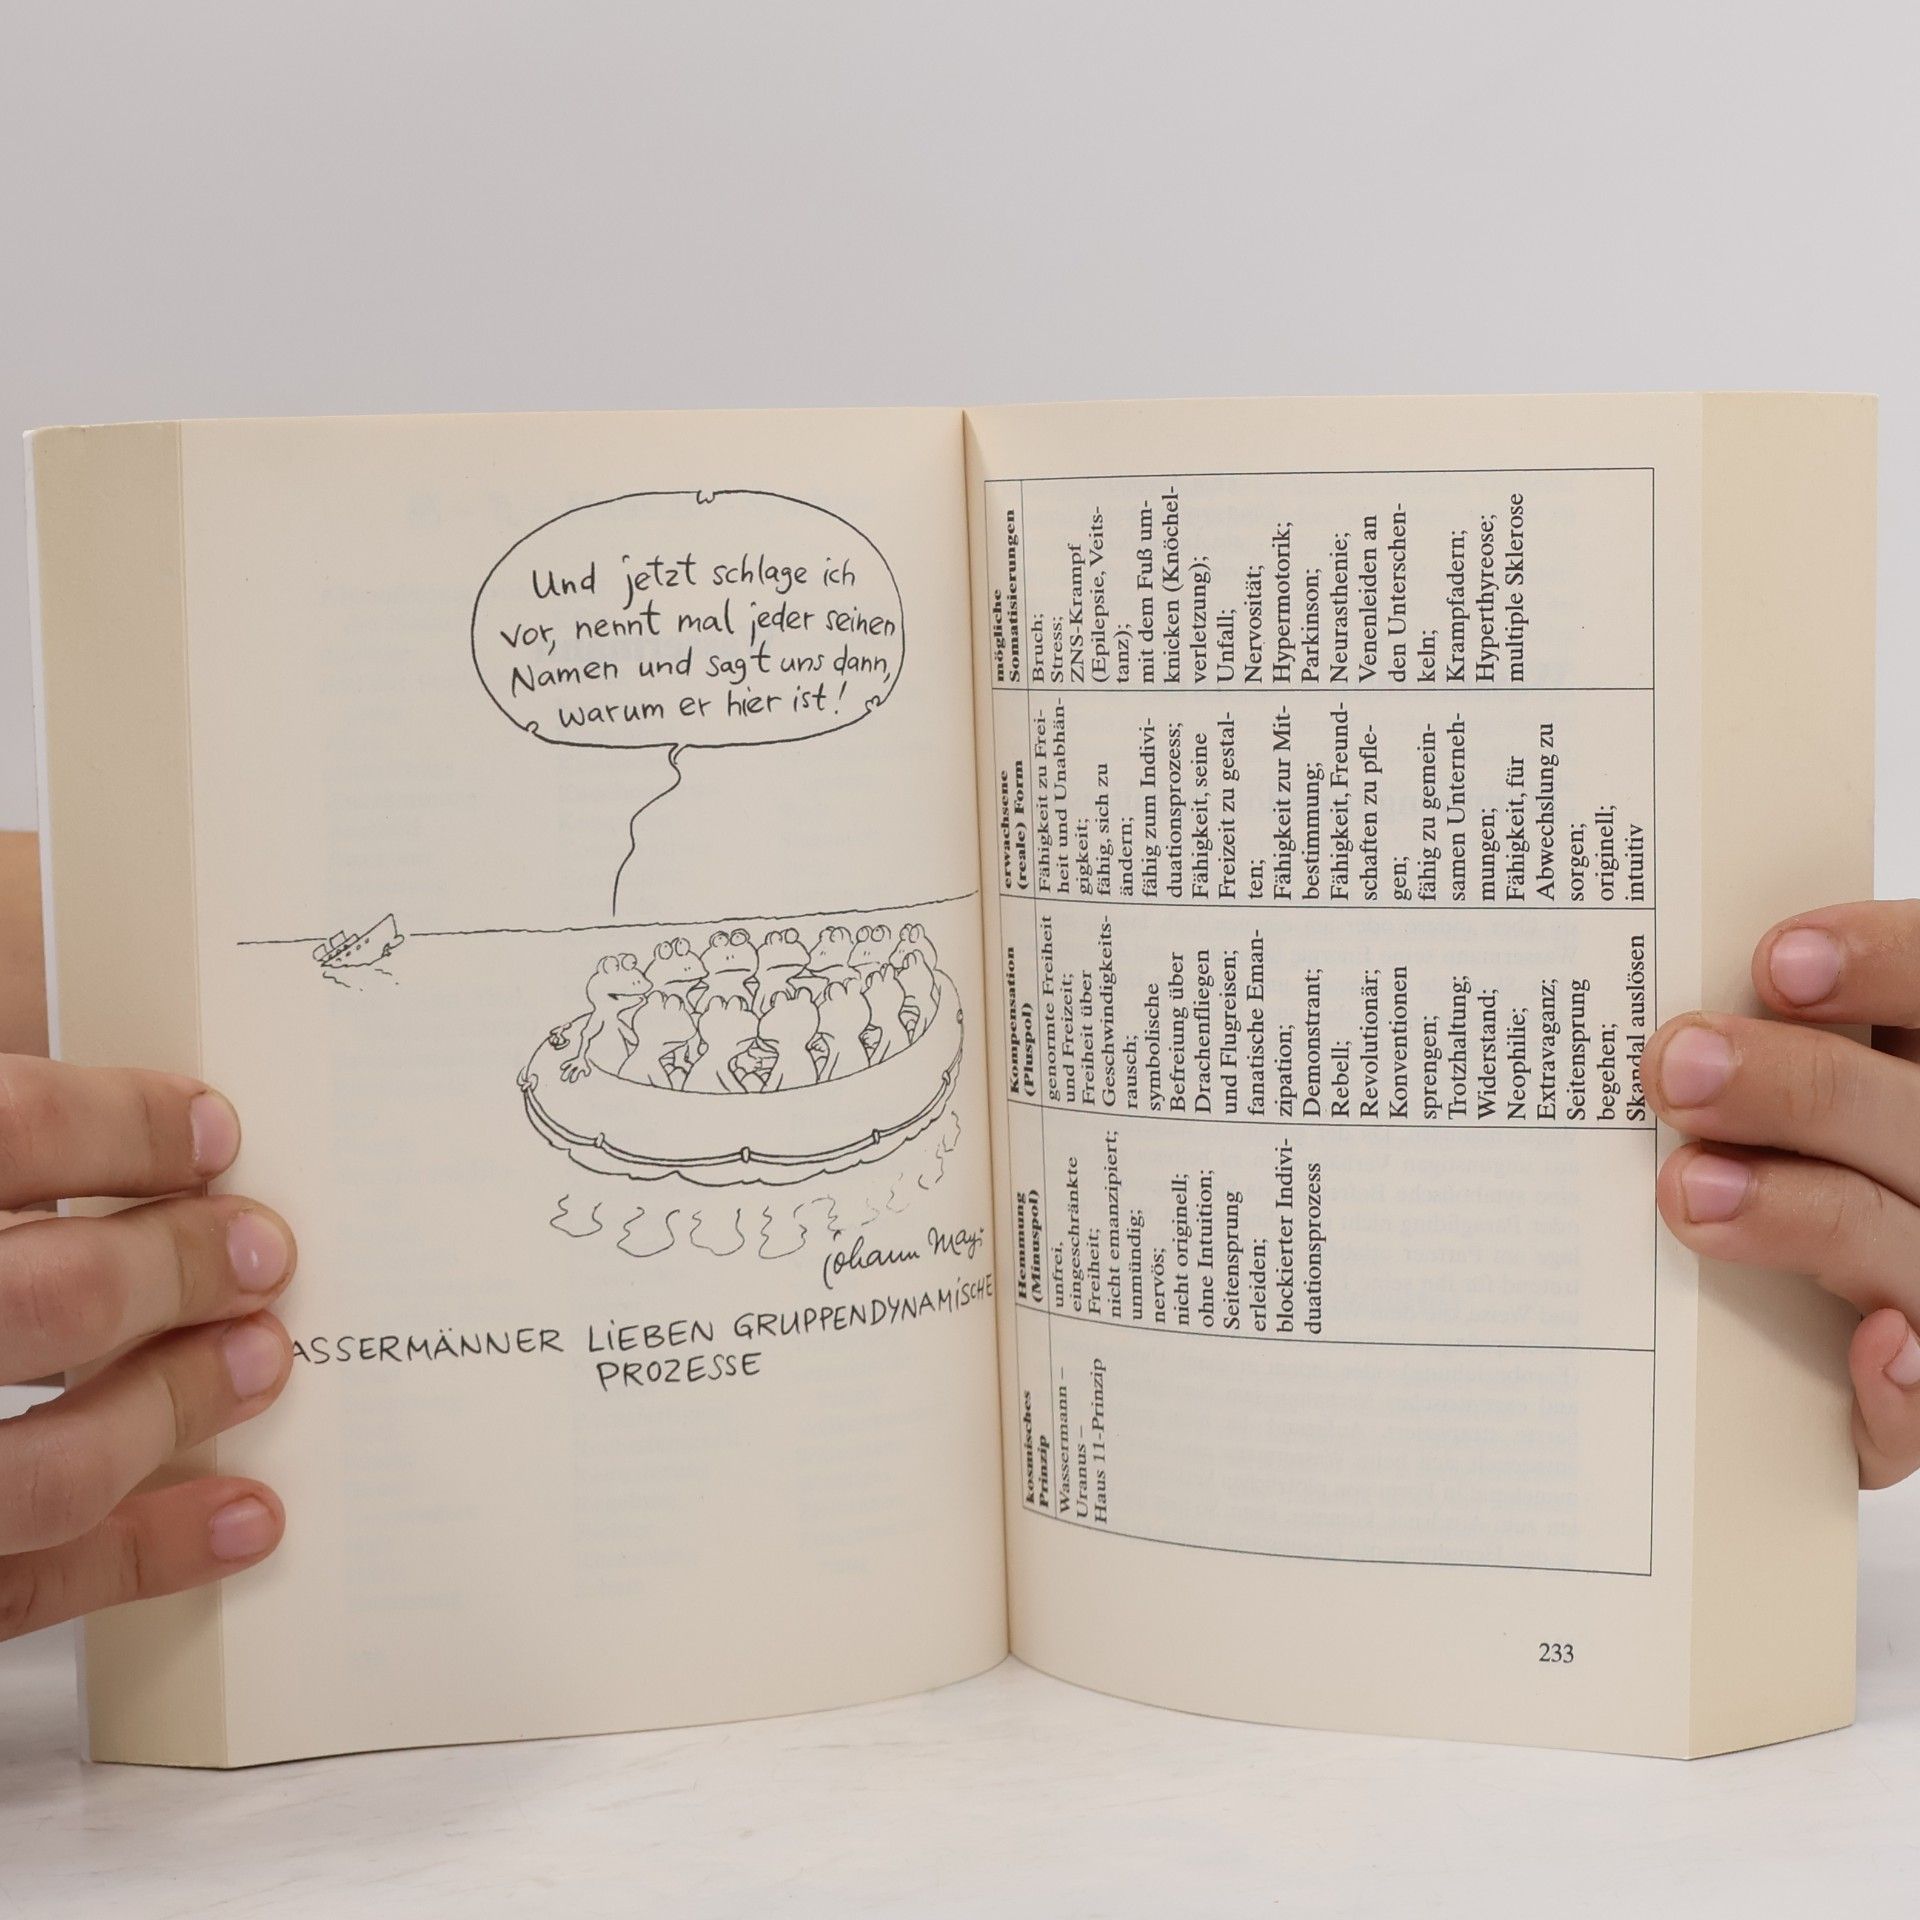 Und jetzt schlage ich
vor, nennt mal jeder seinen
Namen und sagt uns dann,
warum er hier ist!
Johann Mayr
ASSERMÄNNER LIEBEN GRUPPENDYNAMISCHE
PROZESSE
kosmisches
Prinzip
Wassermann –
Uranus –
Haus 11-Prinzip
Hemmung
(Minuspol)
unfrei,
eingeschränkte
Freiheit;
nicht emanzipiert;
unmündig;
nervös;
nicht originell;
ohne Intuition;
Seitensprung
erleiden;
blockierter Indivi-
duationsprozess
Kompensation
(Pluspol)
genormte Freiheit
und Freizeit;
Freiheit über
Geschwindigkeits-
rausch;
symbolische
Befreiung über
Drachenfliegen
und Flugreisen;
fanatische Eman-
zipation;
Demonstrant;
Rebell;
Revolutionär;
Konventionen
sprengen;
Trotzhaltung;
Widerstand;
Neophilie;
Extravaganz;
Seitensprung
begehen;
Skandal auslösen
erwachsene
(reale) Form
Fähigkeit zu Frei-
heit und Unabhän-
gigkeit;
fähig, sich zu
ändern;
fähig zum Indivi-
duationsprozess;
Fähigkeit, seine
Freizeit zu gestal-
ten;
Fähigkeit zur Mit-
bestimmung;
Fähigkeit, Freund-
schaften zu pfle-
gen;
fähig zu gemein-
samen Unterneh-
mungen;
Fähigkeit, für
Abwechslung zu
sorgen;
originell;
intuitiv
mögliche
Somatisierungen
Bruch;
Stress;
ZNS-Krampf
(Epilepsie, Veits-
tanz);
mit dem Fuß um-
knicken (Knöchel-
verletzung);
Unfall;
Nervosität;
Hypermotorik;
Parkinson;
Neurasthenie;
Venenleiden an
den Unterschen-
keln;
Krampfadern;
Hyperthyreose;
multiple Sklerose
233